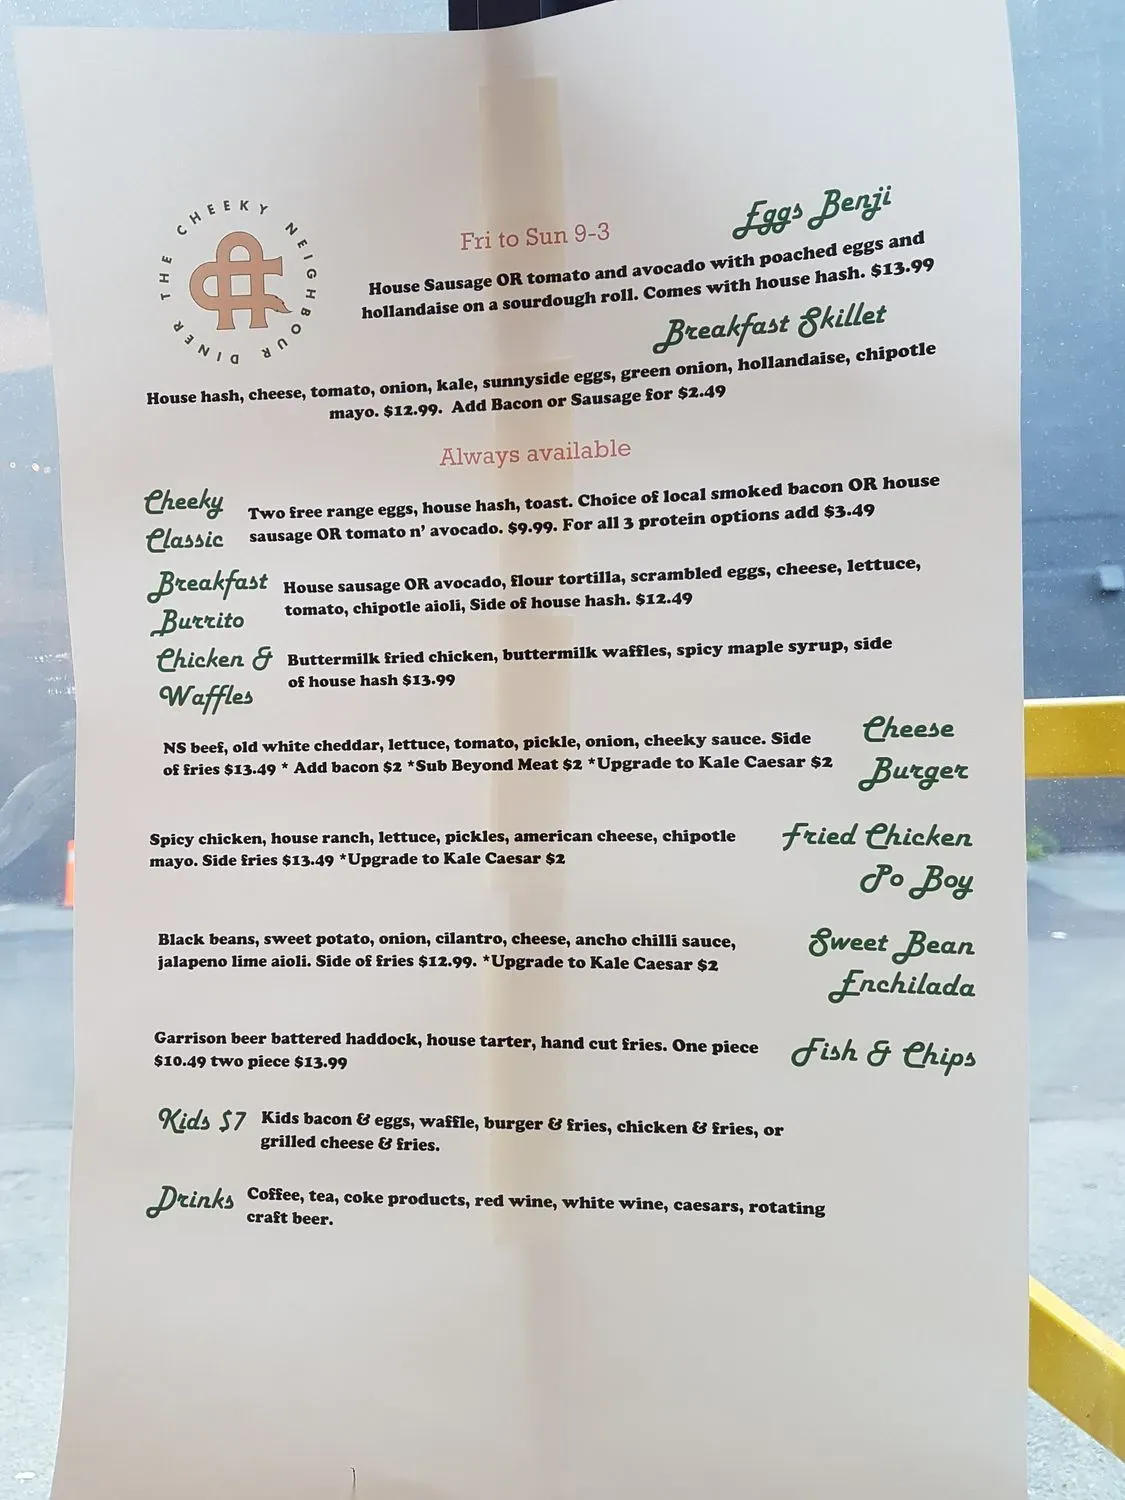 THE CHEEKY NEIGHBOUR DINER
Fri to Sun 9-3
Eggs Benji
House Sausage OR tomato and avocado with poached eggs and
hollandaise on a sourdough roll. Comes with house hash. $13.99
Breakfast Skillet
House hash, cheese, tomato, onion, kale, sunnyside eggs, green onion, hollandaise, chipotle
mayo. $12.99. Add Bacon or Sausage for $2.49
Always available
Cheeky
Classic
Two free range eggs, house hash, toast. Choice of local smoked bacon OR house
sausage OR tomato n' avocado. $9.99. For all 3 protein options add $3.49
Breakfast
Burrito
House sausage OR avocado, flour tortilla, scrambled eggs, cheese, lettuce,
tomato, chipotle aioli, Side of house hash. $12.49
Chicken &
Waffles
Buttermilk fried chicken, buttermilk waffles, spicy maple syrup, side
of house hash $13.99
Cheese
Burger
NS beef, old white cheddar, lettuce, tomato, pickle, onion, cheeky sauce. Side
of fries $13.49 * Add bacon $2 *Sub Beyond Meat $2 *Upgrade to Kale Caesar $2
Fried Chicken
Po Boy
Spicy chicken, house ranch, lettuce, pickles, american cheese, chipotle
mayo. Side fries $13.49 *Upgrade to Kale Caesar $2
Sweet Bean
Enchilada
Black beans, sweet potato, onion, cilantro, cheese, ancho chilli sauce,
jalapeno lime aioli. Side of fries $12.99. *Upgrade to Kale Caesar $2
Fish & Chips
Garrison beer battered haddock, house tarter, hand cut fries. One piece
$10.49 two piece $13.99
Kids $7
Kids bacon & eggs, waffle, burger & fries, chicken & fries, or
grilled cheese & fries.
Drinks
Coffee, tea, coke products, red wine, white wine, caesars, rotating
craft beer.